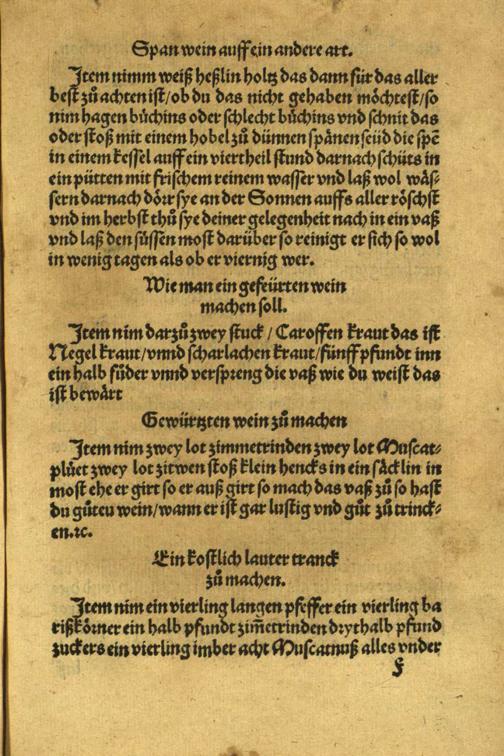 Span wein auff ein andere art.
Jtem nimm weiß heßlin holtz das dann für das aller
best zů achten ist/ob du das nicht gehaben möchtest/so
nim hagen bůchins oder schlecht bůchins vnd schnit das
oder stoß mit einem hobel zů dünnen spänen seüd die spẽ
in einem kessel auff ein viertheil stund darnach schüts in
ein pütten mit frischem reinem wasser vnd laß wol wäs⸗
sern darnach dörr sye an der Sonnen auffs aller röschst
vnd im herbst thů sye deiner gelegenheit nach in ein vaß
vnd laß den süssen most darüber so reinigt er sich so wol
in wenig tagen als ob er viernig wer.
Wie man ein gefeürten wein
machen soll.
Jtem nim darzů zwey stuck / Caroffen kraut das ist
Negel kraut/vnnd scharlachen kraut/fünff pfundt inn
ein halb fůder vnnd verspreng die vaß wie du weist das
ist bewärt
Gewürtzten wein zů machen
Jtem nim zwey lot zimmetrinden zwey lot Muscat⸗
plůet zwey lot zitwen stoß klein hencks in ein säcklin in
most ehe er girt so er auß girt so mach das vaß zů so hast
du gůteu wein/wann er ist gar lustig vnd gůt zů trinck⸗
en.ꝛc.
Ein kostlich lauter tranck
zů machen.
Jtem nim ein vierling langen pfeffer ein vierling ba
rißkörner ein halb pfundt zim̃etrinden drythalb pfund
zuckers ein vierling imber acht Muscatnuß alles vnder
f